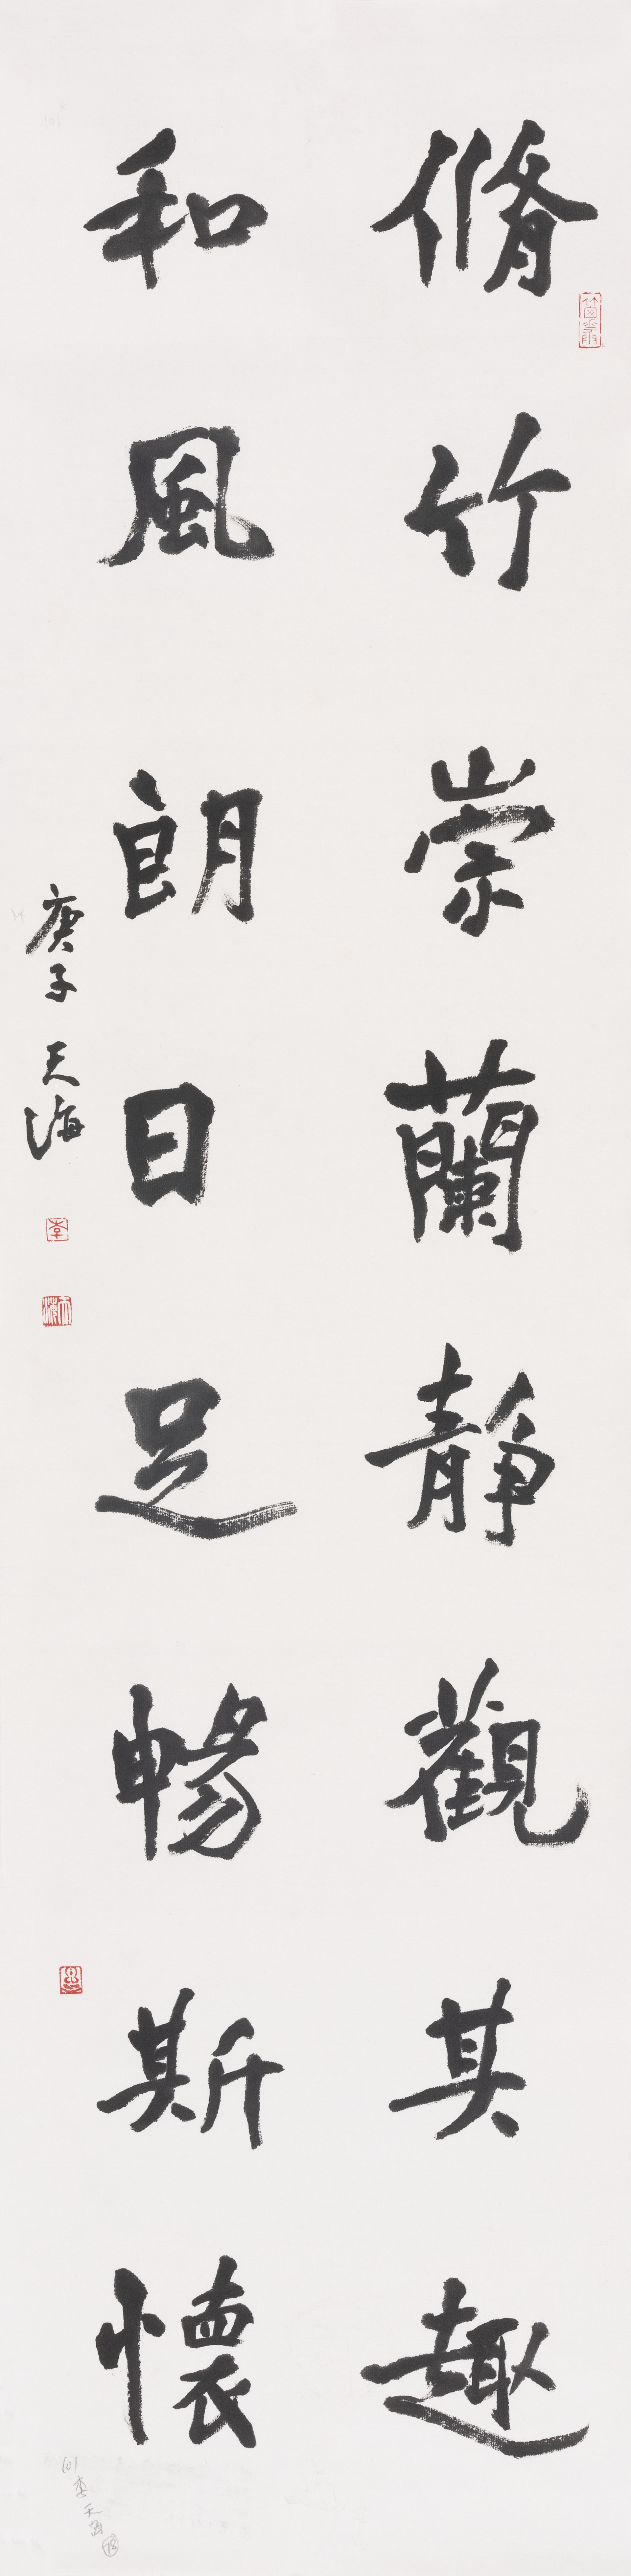 脩竹崇蘭靜觀其趣
和風朗日足暢斯懷
庚子 天海
李
101 李天海